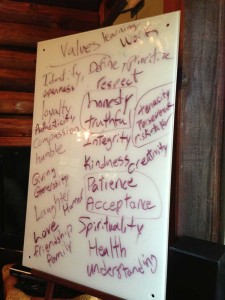 Values learning
Work
Identify, Define, Prioritize
openness respect
loyalty honesty
Authenticity truthful
compassion Integrity
humble Kindness creativity
Giving Patience
Generosity Acceptance
Laughter Humor
Love Spirituality
Friendship Health
Family understanding